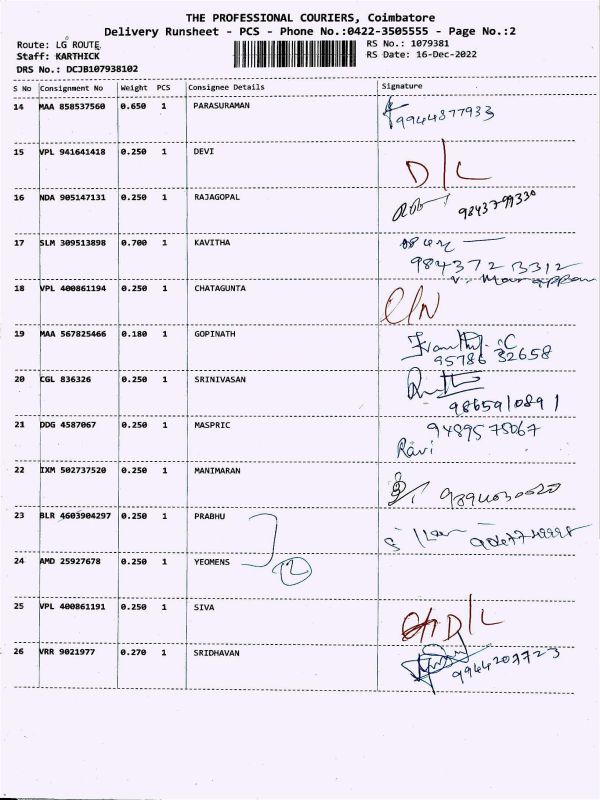 THE PROFESSIONAL COURIERS, Coimbatore
Delivery Runsheet - PCS - Phone No.:0422-3505555 - Page No.:2
Route: LG ROUTE RS No.: 1079381
Staff: KARTHICK RS Date: 16-Dec-2022
DRS No.: DCJB107938102
S No Consignment No Weight PCS Consignee Details Signature
14 MAA 858537560 0.650 1 PARASURAMAN
9944877933
15 VPL 941641418 0.250 1 DEVI
D/L
16 NDA 905147131 0.250 1 RAJAGOPAL
17 SLM 309513898 0.700 1 KAVITHA
984372 3312
18 VPL 400861194 0.250 1 CHATAGUNTA
19 MAA 567825466 0.180 1 GOPINATH
95786 32658
20 CGL 836326 0.250 1 SRINIVASAN
9865910891
21 DDG 4587067 0.250 1 MASPRIC
9489575067
Ravi
22 IXM 502737520 0.250 1 MANIMARAN
23 BLR 4603904297 0.250 1 PRABHU
24 AMD 25927678 0.250 1 YEOMENS
2
25 VPL 400861191 0.250 1 SIVA
D/L
26 VRR 9021977 0.270 1 SRIDHAVAN
9944207723